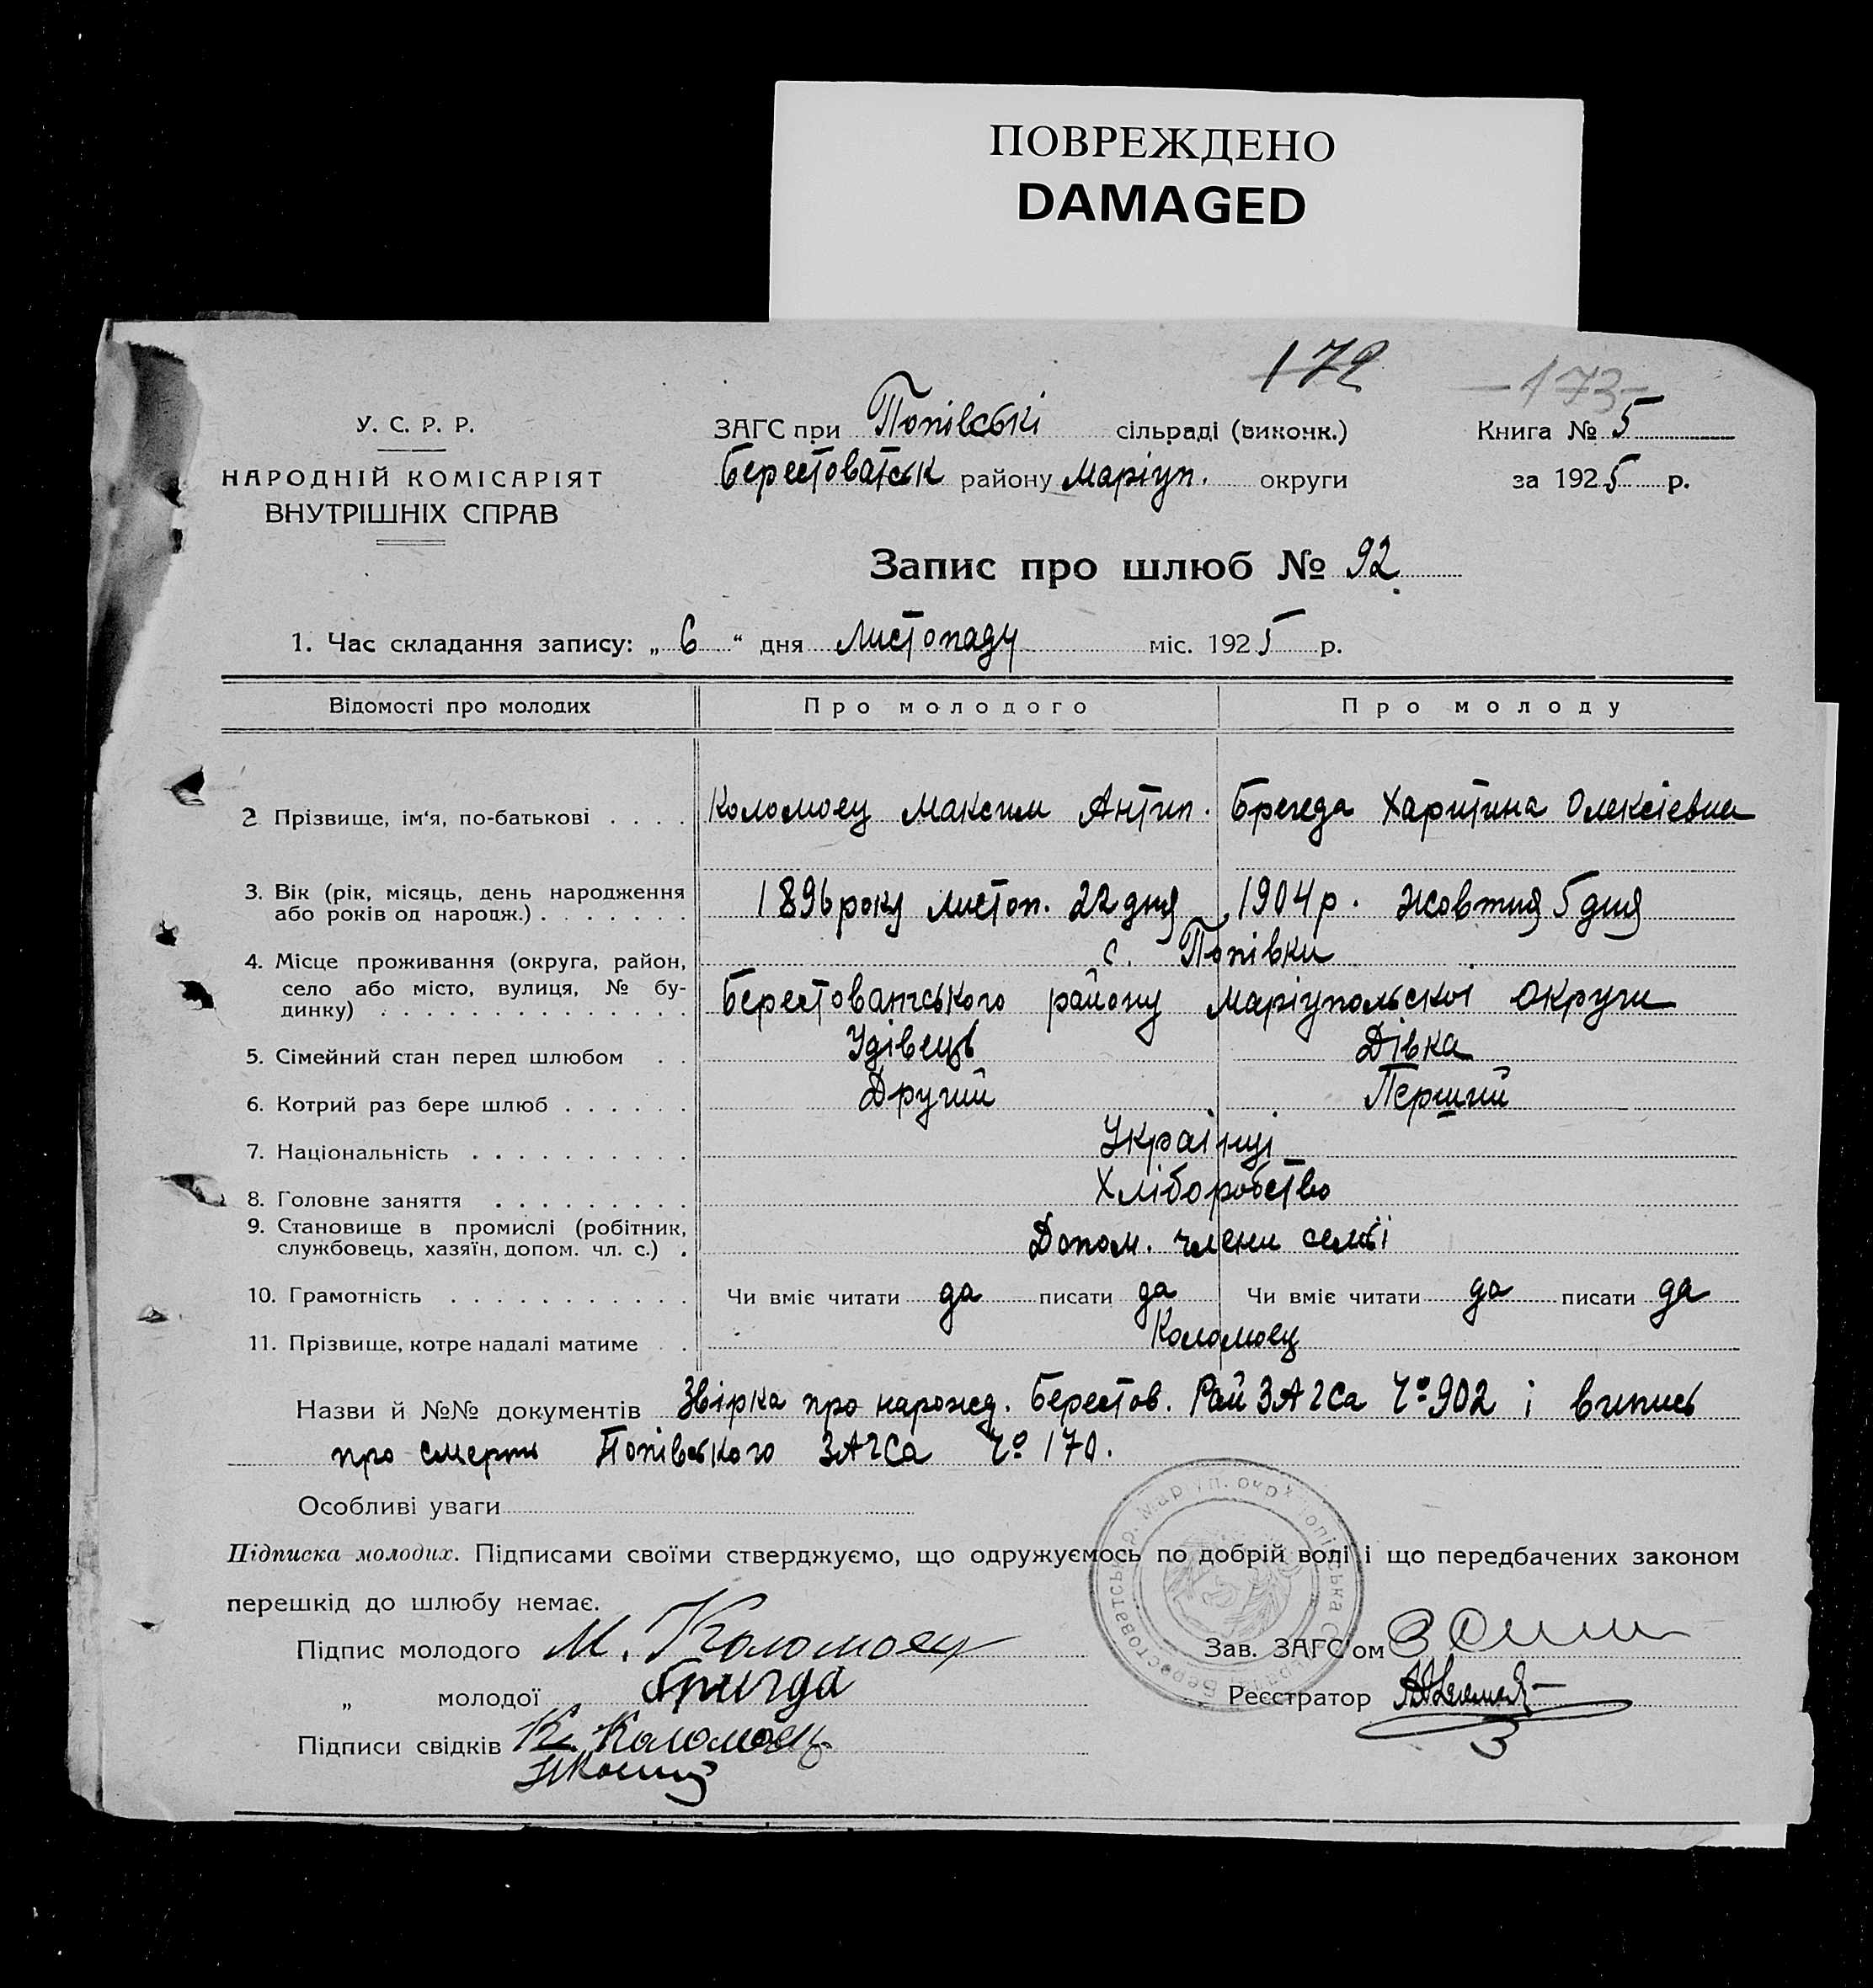 ПОВРЕЖДЕНО
DAMAGED
172
173
У. С. Р. Р.
НАРОДНІЙ КОМІСАРІЯТ
ВНУТРІШНІХ СПРАВ
ЗАГС при Попівські сільраді (виконк.)
Берестоватськ району Маріуп. округи
Книга № 5
за 1925 р.
Запис про шлюб № 92
1. Час складання запису: „ 6 “ дня Листопаду міс. 1925 р.
Відомості про молодих Про молодого Про молоду
2 Прізвище, ім‘я, по-батькові . . . . Коломоец Максим Антип. Брегеда Харитина Олексіевна
3. Вік (рік, місяць, день народження
або років од народж.) . . . . . . . 1896 року листоп. 22 дня 1904 р. Жовтня 5 дня
4. Місце проживання (округа, район, с. Попівки
село або місто, вулиця, № бу-
динку) . . . . . . . . . . . . . . Берестоватського району Маріупольскоі округи
5. Сімейний стан перед шлюбом . . Удівець Дівка
6. Котрий раз бере шлюб . . . . . . Другий Перший
7. Національність . . . . . . . . . . Украінці
8. Головне заняття . . . . . . . . . Хліборобство
9. Становище в промислі (робітник,
службовець, хазяїн, допом. чл. с.) . Допом. члени семьі
10. Грамотність . . . . . . . . . . . Чи вміє читати да писати да Чи вміє читати да писати да
11. Прізвище, котре надалі матиме . . Коломоец
Назви й №№ документів Звірка про нарожд. Берестов. Рай ЗАГСа Чº 902 і випись
про смерть Попівського ЗАГСа Чº 170.
Особливі уваги
Підписка молодих. Підписами своїми стверджуємо, що одружуємось по добрій волі і що передбачених законом
перешкід до шлюбу немає.
Підпис молодого М. Коломоец
„ молодої Бригда
Підписи свідків К. Коломоец
Зав. ЗАГС'ом
Реєстратор